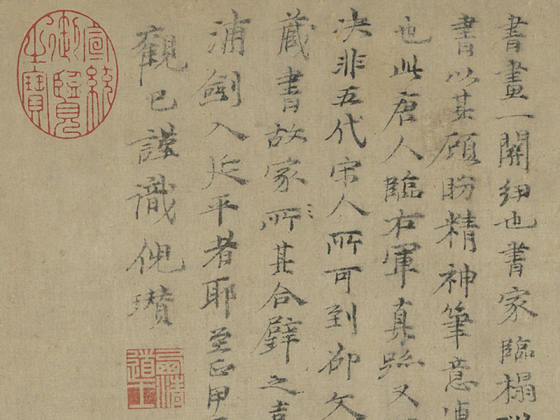 書畫一關紐也書家臨榻
書以其顧盼精神筆意
也此唐人臨右軍真跡又
決非五代宋人所可到卻欠
藏書故家所其合璧之
浦劍入延平者耶至正甲
觀已謹識倪瓚
宣統御覽之寶